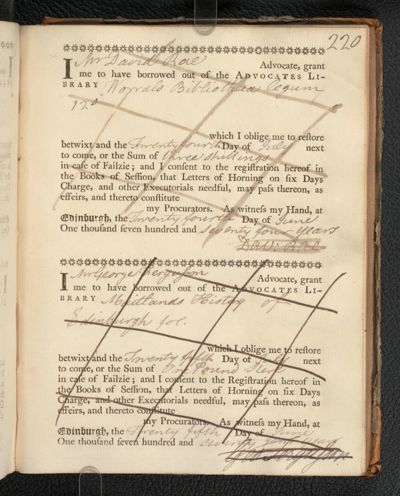 220
I Mr David Rae Advocate, grant
me to have borrowed out of the ADVOCATES LI-
BRARY Bibliotheca Legum
12o
which I oblige me to reſtore
betwixt and the Twenty fourth Day of July next
to come, or the Sum of three shillings
in caſe of Failzie; and I conſent to the regiſtration hereof in
the Books of Seſſion, that Letters of Horning on ſix Days
Charge, and other Executorials needful, may paſs thereon, as
effeirs, and thereto conſtitute
my Procurators. As witneſs my Hand, at
Edinburgh, the Twenty fourth Day of June
One thouſand ſeven hundred and seventy four years
Dav: Rae
I Mr George Ferguſson Advocate, grant
me to have borrowed out of the ADVOCATES LI-
BRARY Maitlands History of
Edinburgh fol.
which I oblige me to reſtore
betwixt and the Twenty fifth Day of July next
to come, or the Sum of One Pound Sterl
in caſe of Failzie; and I conſent to the Regiſtration hereof in
the Books of Seſſion, that Letters of Horning on ſix Days
Charge, and other Executorials needful, may paſs thereon, as
effeirs, and thereto conſtitute
my Procurators. As witneſs my Hand, at
Edinburgh, the Twenty fifth Day of June
One thouſand ſeven hundred and seventy four years